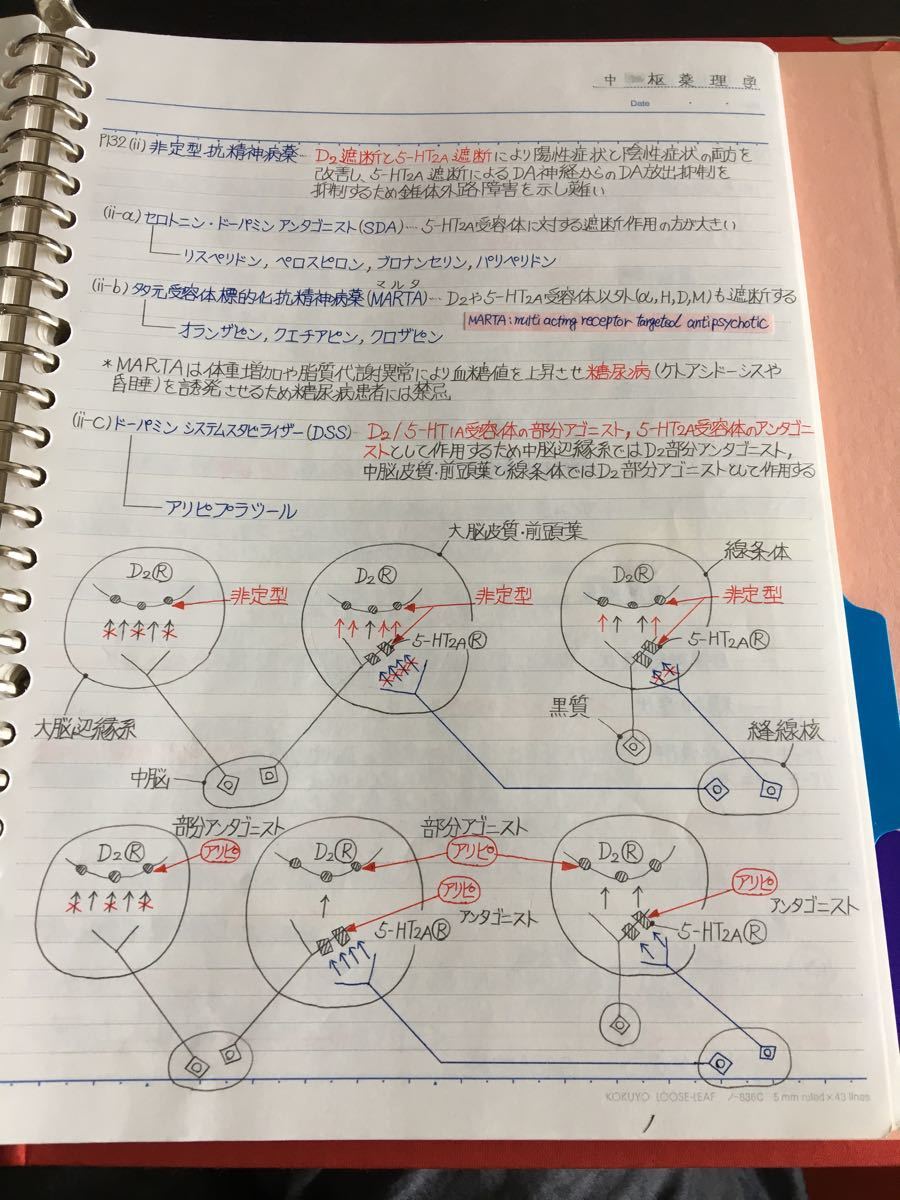 中 枢薬理学
Date
P132 (ii) 非定型抗精神病薬… D₂遮断と5-HT2A遮断により陽性症状と陰性症状の両方を
改善し、5-HT2A遮断によるDA神経からのDA放出抑制を
抑制するため錐体外路障害を示し難い
(ii-a) セロトニン・ドーパミンアンタゴニスト(SDA)… 5-HT2A受容体に対する遮断作用の方が大きい
リスペリドン, ペロスピロン, ブロナンセリン, パリペリドン
マルタ
(ii-b) 多元受容体標的化抗精神病薬(MARTA)… D₂や5-HT2A受容体以外(α, H, D, M)も遮断する
MARTA: multi acting receptor targeted antipsychotic
オランザピン, クエチアピン, クロザピン
*MARTAは体重増加や脂質代謝異常により血糖値を上昇させ糖尿病(ケトアシドーシスや
昏睡)を誘発させるため糖尿病患者には禁忌
(ii-c) ドーパミンシステムスタビライザー(DSS)… D₂/5-HT1A受容体の部分アゴニスト, 5-HT2A受容体のアンタゴニ
ストとして作用するため中脳辺縁系ではD₂部分アンタゴニスト,
中脳皮質・前頭葉と線条体ではD₂部分アゴニストとして作用する
アリピプラゾール
大脳皮質・前頭葉
線条体
D₂Ⓡ
D₂Ⓡ
D₂Ⓡ
非定型
非定型
非定型
5-HT2AⓇ
5-HT2AⓇ
大脳辺縁系
黒質
縫線核
中脳
部分アンタゴニスト
部分アゴニスト
D₂Ⓡ
アリピ
D₂Ⓡ
アリピ
D₂Ⓡ
アリピ
アンタゴニスト
5-HT2AⓇ
アリピ
アンタゴニスト
5-HT2AⓇ
KOKUYO LOOSE-LEAF ノ-836C 5 mm ruled×43 lines
1